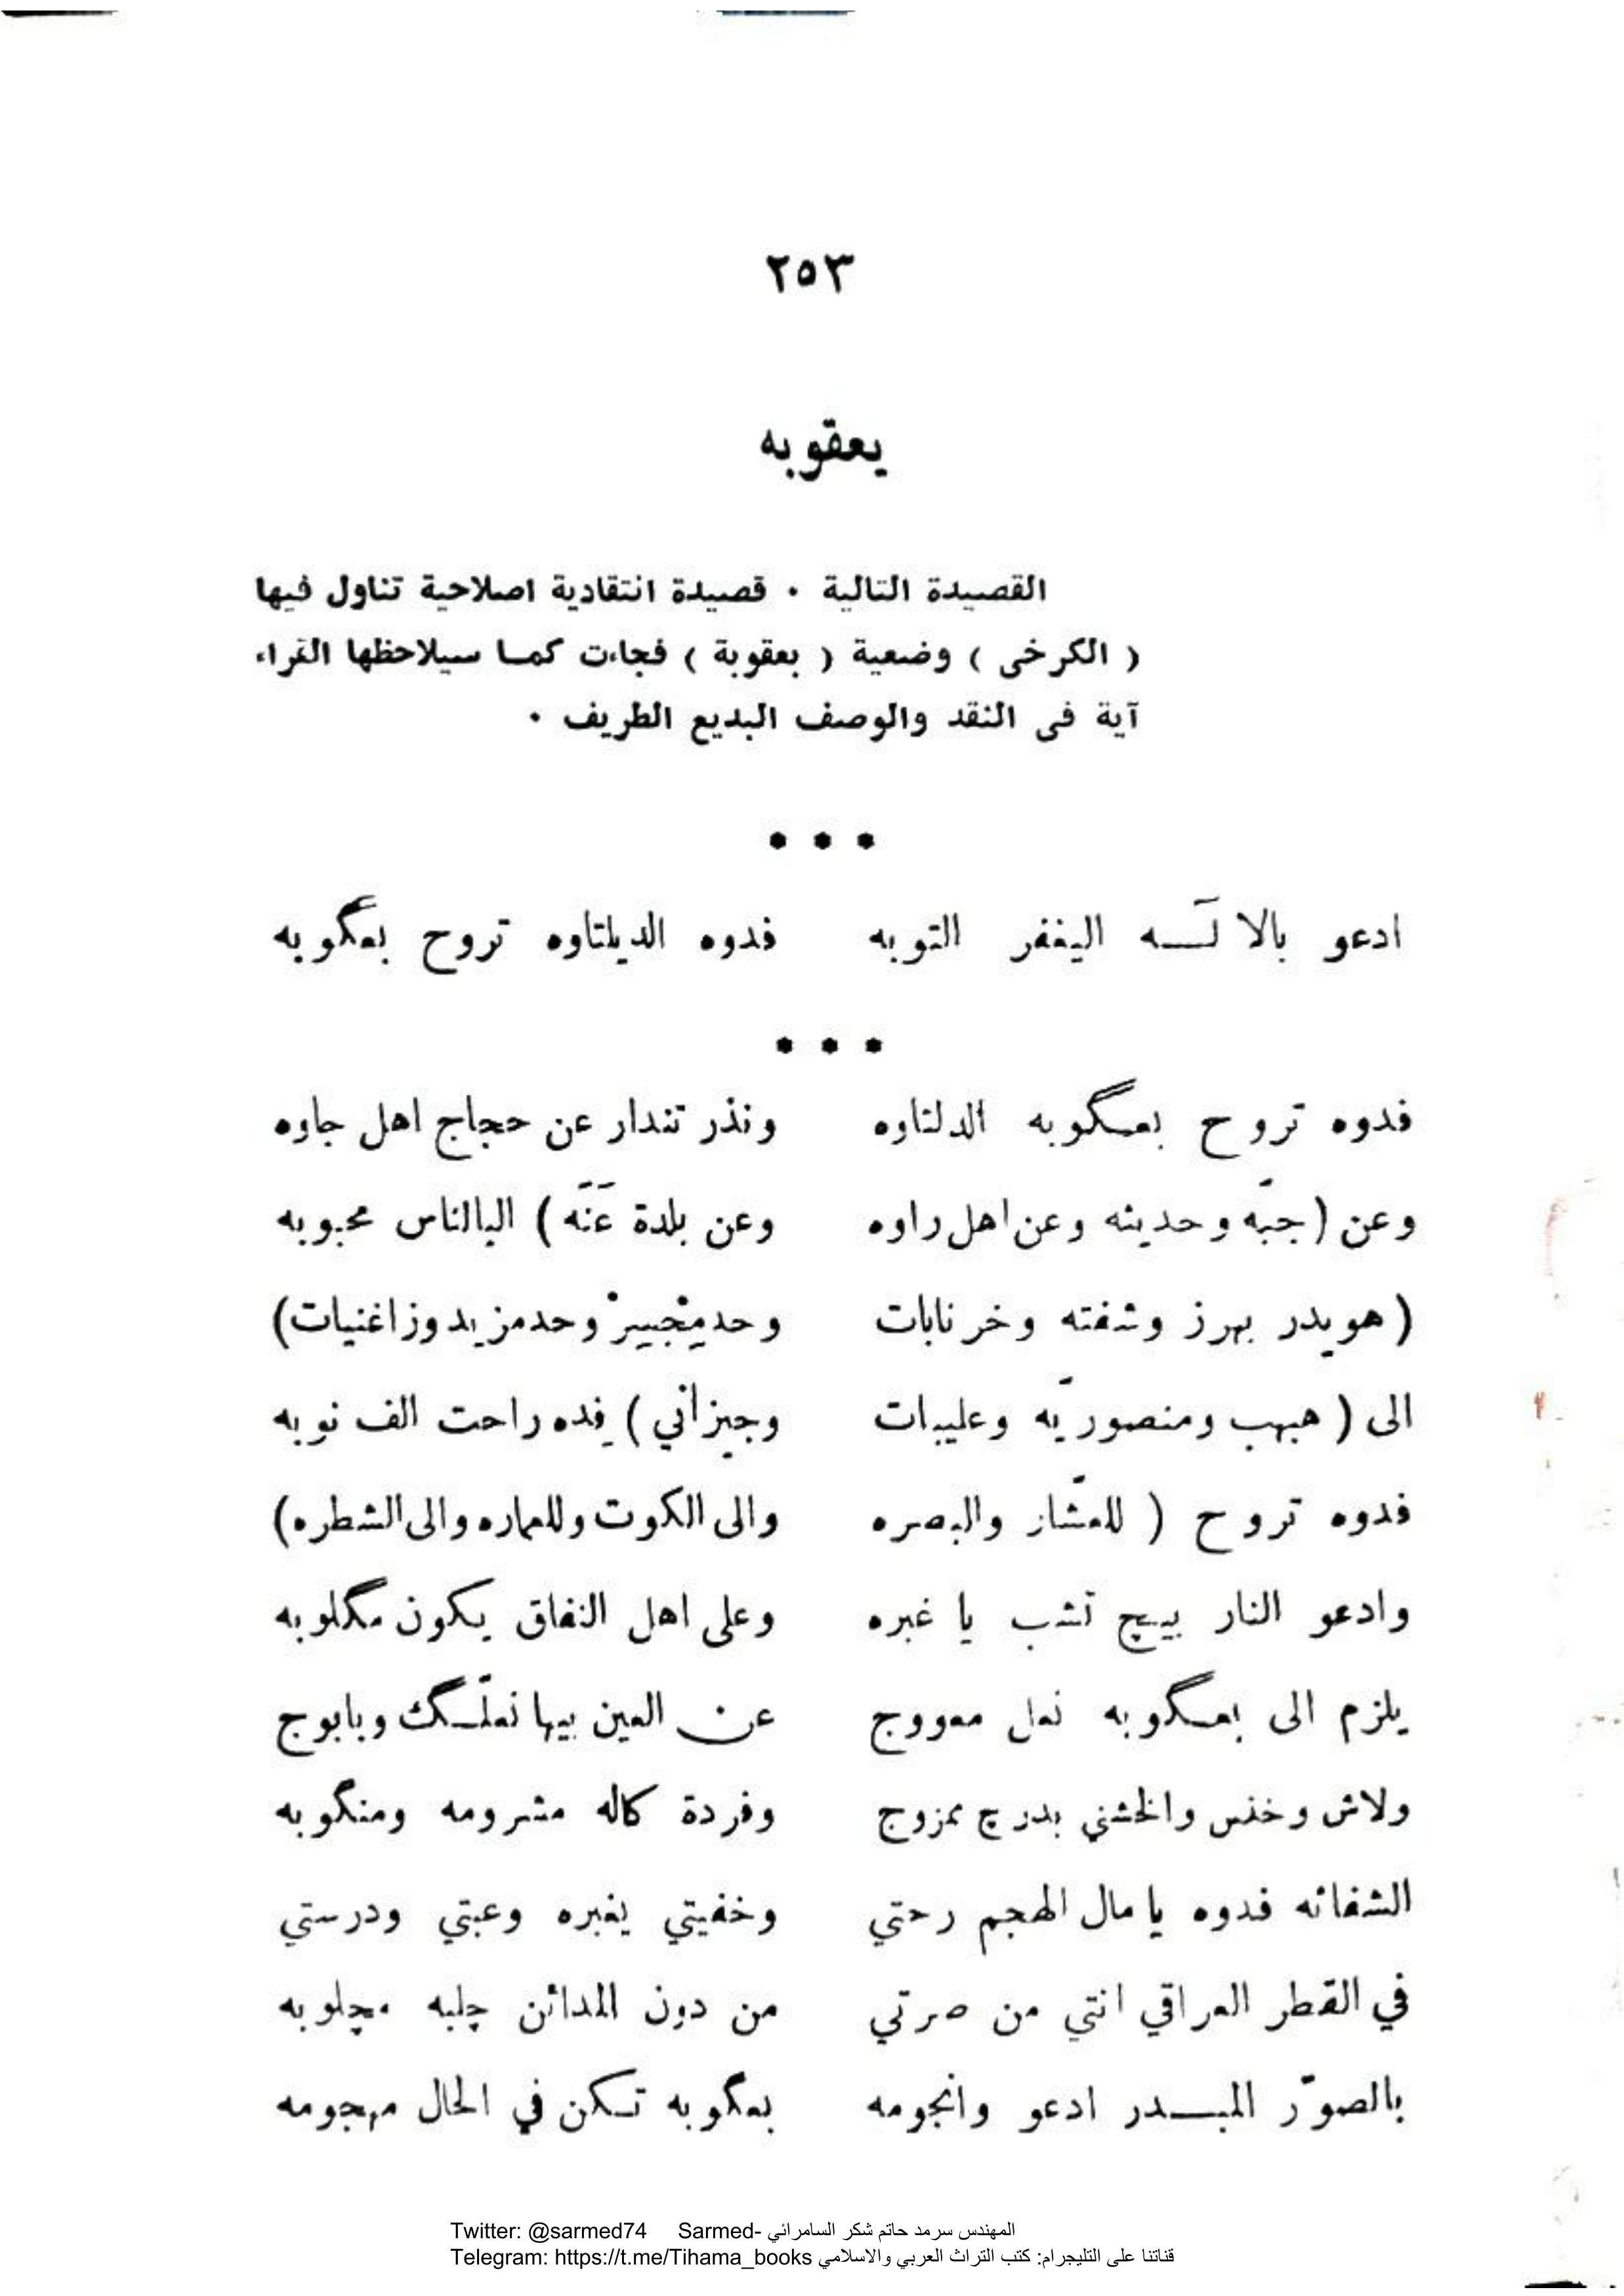 ٢٥٣
يعقوبه
القصيدة التالية . قصيدة انتقادية اصلاحية تناول فيها
( الكرخى ) وضعية ( بعقوبة ) فجاءت كما سيلاحظها القراء
آية فى النقد والوصف البديع الطريف .
ادعو بالا لَسه اليغفر التوبه فدوه الديلتاوه تروح بعگوبه
فدوه تروح بعگوبه الدلتاوه ونذر تندار عن حجاج اهل جاوه
وعن (جبّه وحديثه وعن اهل راوه وعن بلدة عَنَه) البالناس محبوبه
(هويدر بهرز وشفته وخرنابات وحد مِخْيِسِرْ وحد مزيد وزاغنيات)
الى ( هبهب ومنصوريّه وعليبات وجيزاني) فِده راحت الف نوبه
فدوه تروح ( للعشّار والبصره والى الكوت وللعماره والى الشطره)
وادعو النار بيچ تشب يا غبره وعلى اهل النفاق يكون مگلوبه
يلزم الى بعگوبه نعل معووج عن العين بيها نعلّگ وبابوج
ولاش وخنس والخشني بدرچ ممزوج وفردة كاله مشرومه ومنگوبه
الشفاثه فدوه يا مال الهجم رحتي وخفيتي يغبره وعبتي ودرستي
في القطر العراقي انتي من صرتي من دون المدائن چلبه مچلوبه
بالصوّر البدر ادعو وانجومه بعگوبه تسكن في الحال مهجومه
Twitter: @sarmed74 Sarmed- المهندس سرمد حاتم شكر السامرائي
Telegram: https://t.me/Tihama_books قناتنا على التليجرام: كتب التراث العربي والاسلامي